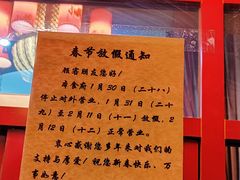 春节放假通知
顾客朋友您好！
本食府1月30日（二十八）
停止对外营业，1月31日（二十
九）至2月11日（十一）放假，2
月12日（十二）正常营业。
衷心感谢您多年来对我们的
支持与厚爱！祝您新春快乐、万
事如意！